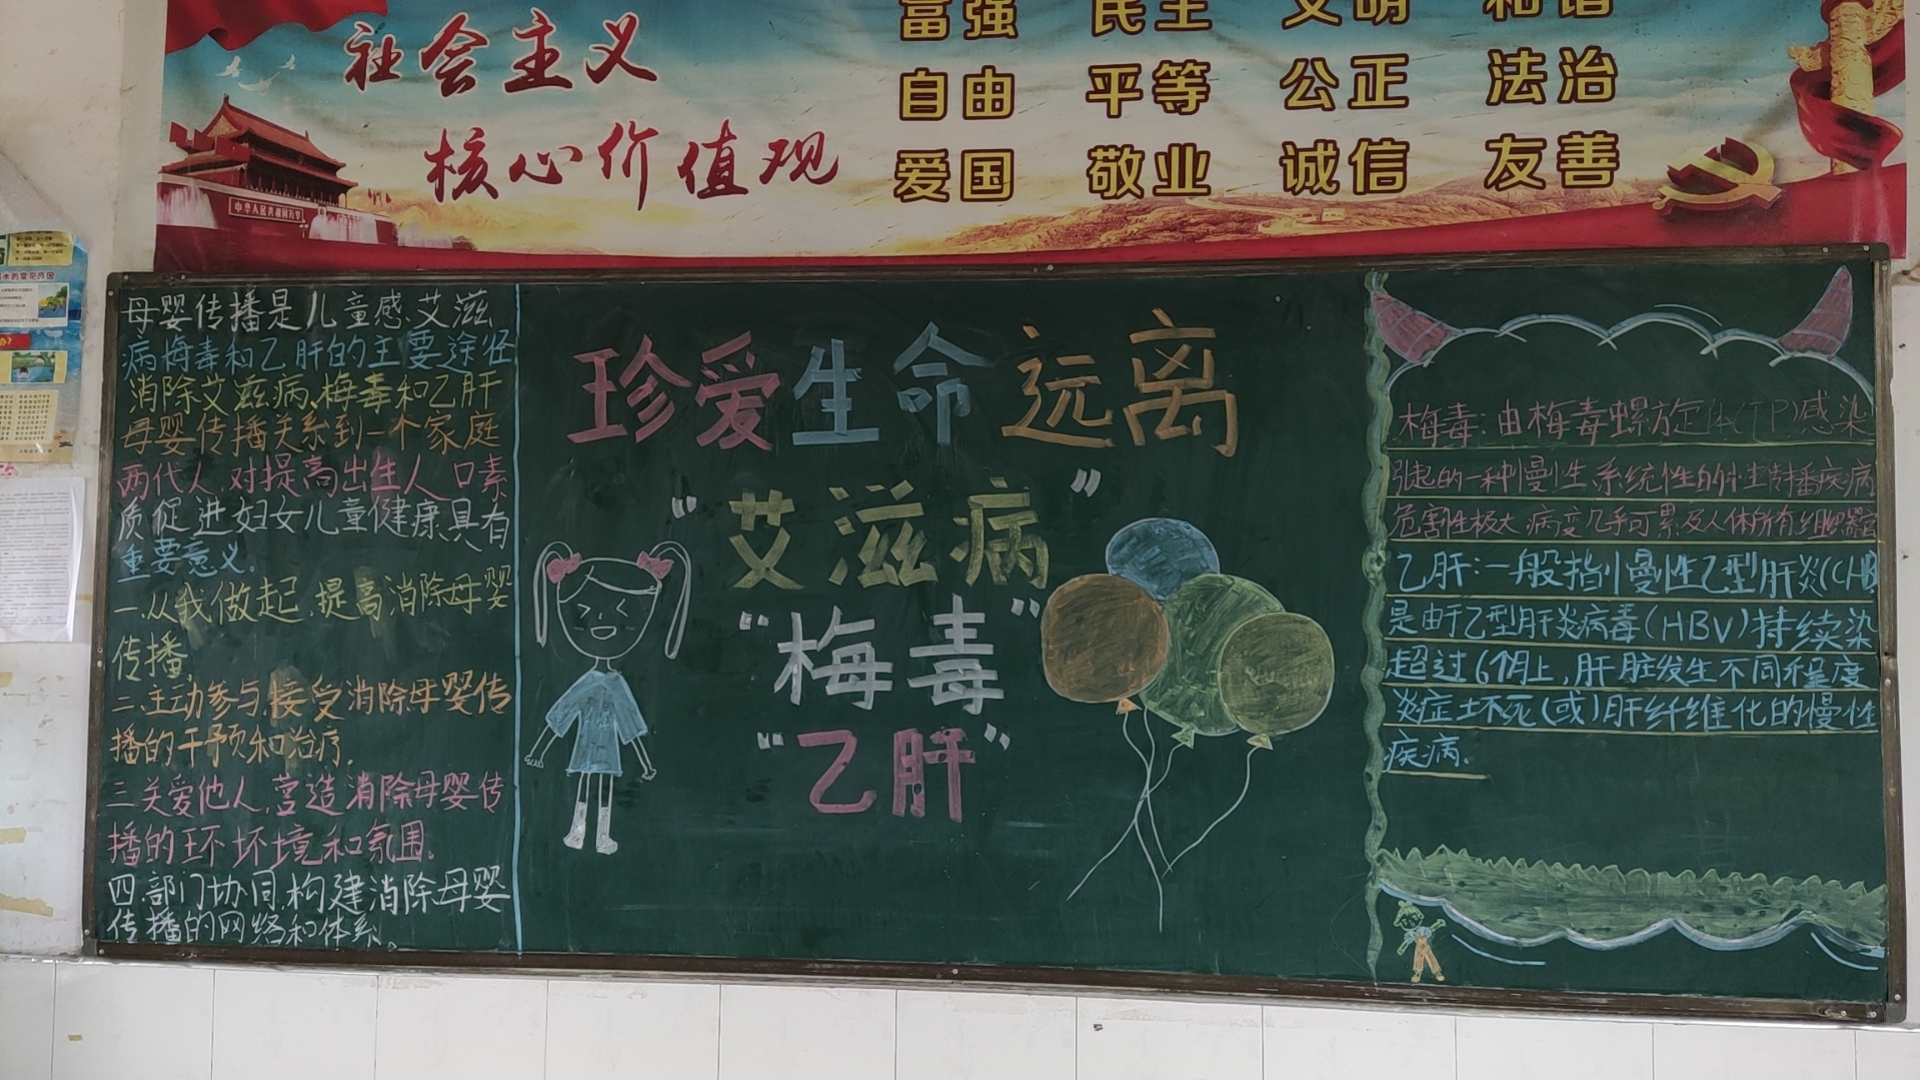 社会主义
核心价值观
富强 民主 文明 和谐
自由 平等 公正 法治
爱国 敬业 诚信 友善
中华人民共和国万岁
母婴传播是儿童感艾滋
病梅毒和乙肝的主要途径
消除艾滋病、梅毒和乙肝
母婴传播关系到一个家庭
两代人,对提高出生人口素
质促进妇女儿童健康具有
重要意义。
一.从我做起,提高消除母婴
传播,
二.主动参与,接受消除母婴传
播的干预和治疗.
三.关爱他人,营造消除母婴传
播的环环境和氛围。
四.部门协同,构建消除母婴
传播的网络和体系。
珍爱生命远离
“艾滋病”
“梅毒”
“乙肝”
梅毒:由梅毒螺旋体(TP)感染
引起的一种慢性、系统性的性传播疾病
危害性极大,病变几乎可累及人体所有组织器官
乙肝:一般指慢性乙型肝炎(CHB
是由于乙型肝炎病毒(HBV)持续染
超过6个月上,肝脏发生不同程度
炎症坏死(或)肝纤维化的慢性
疾病.